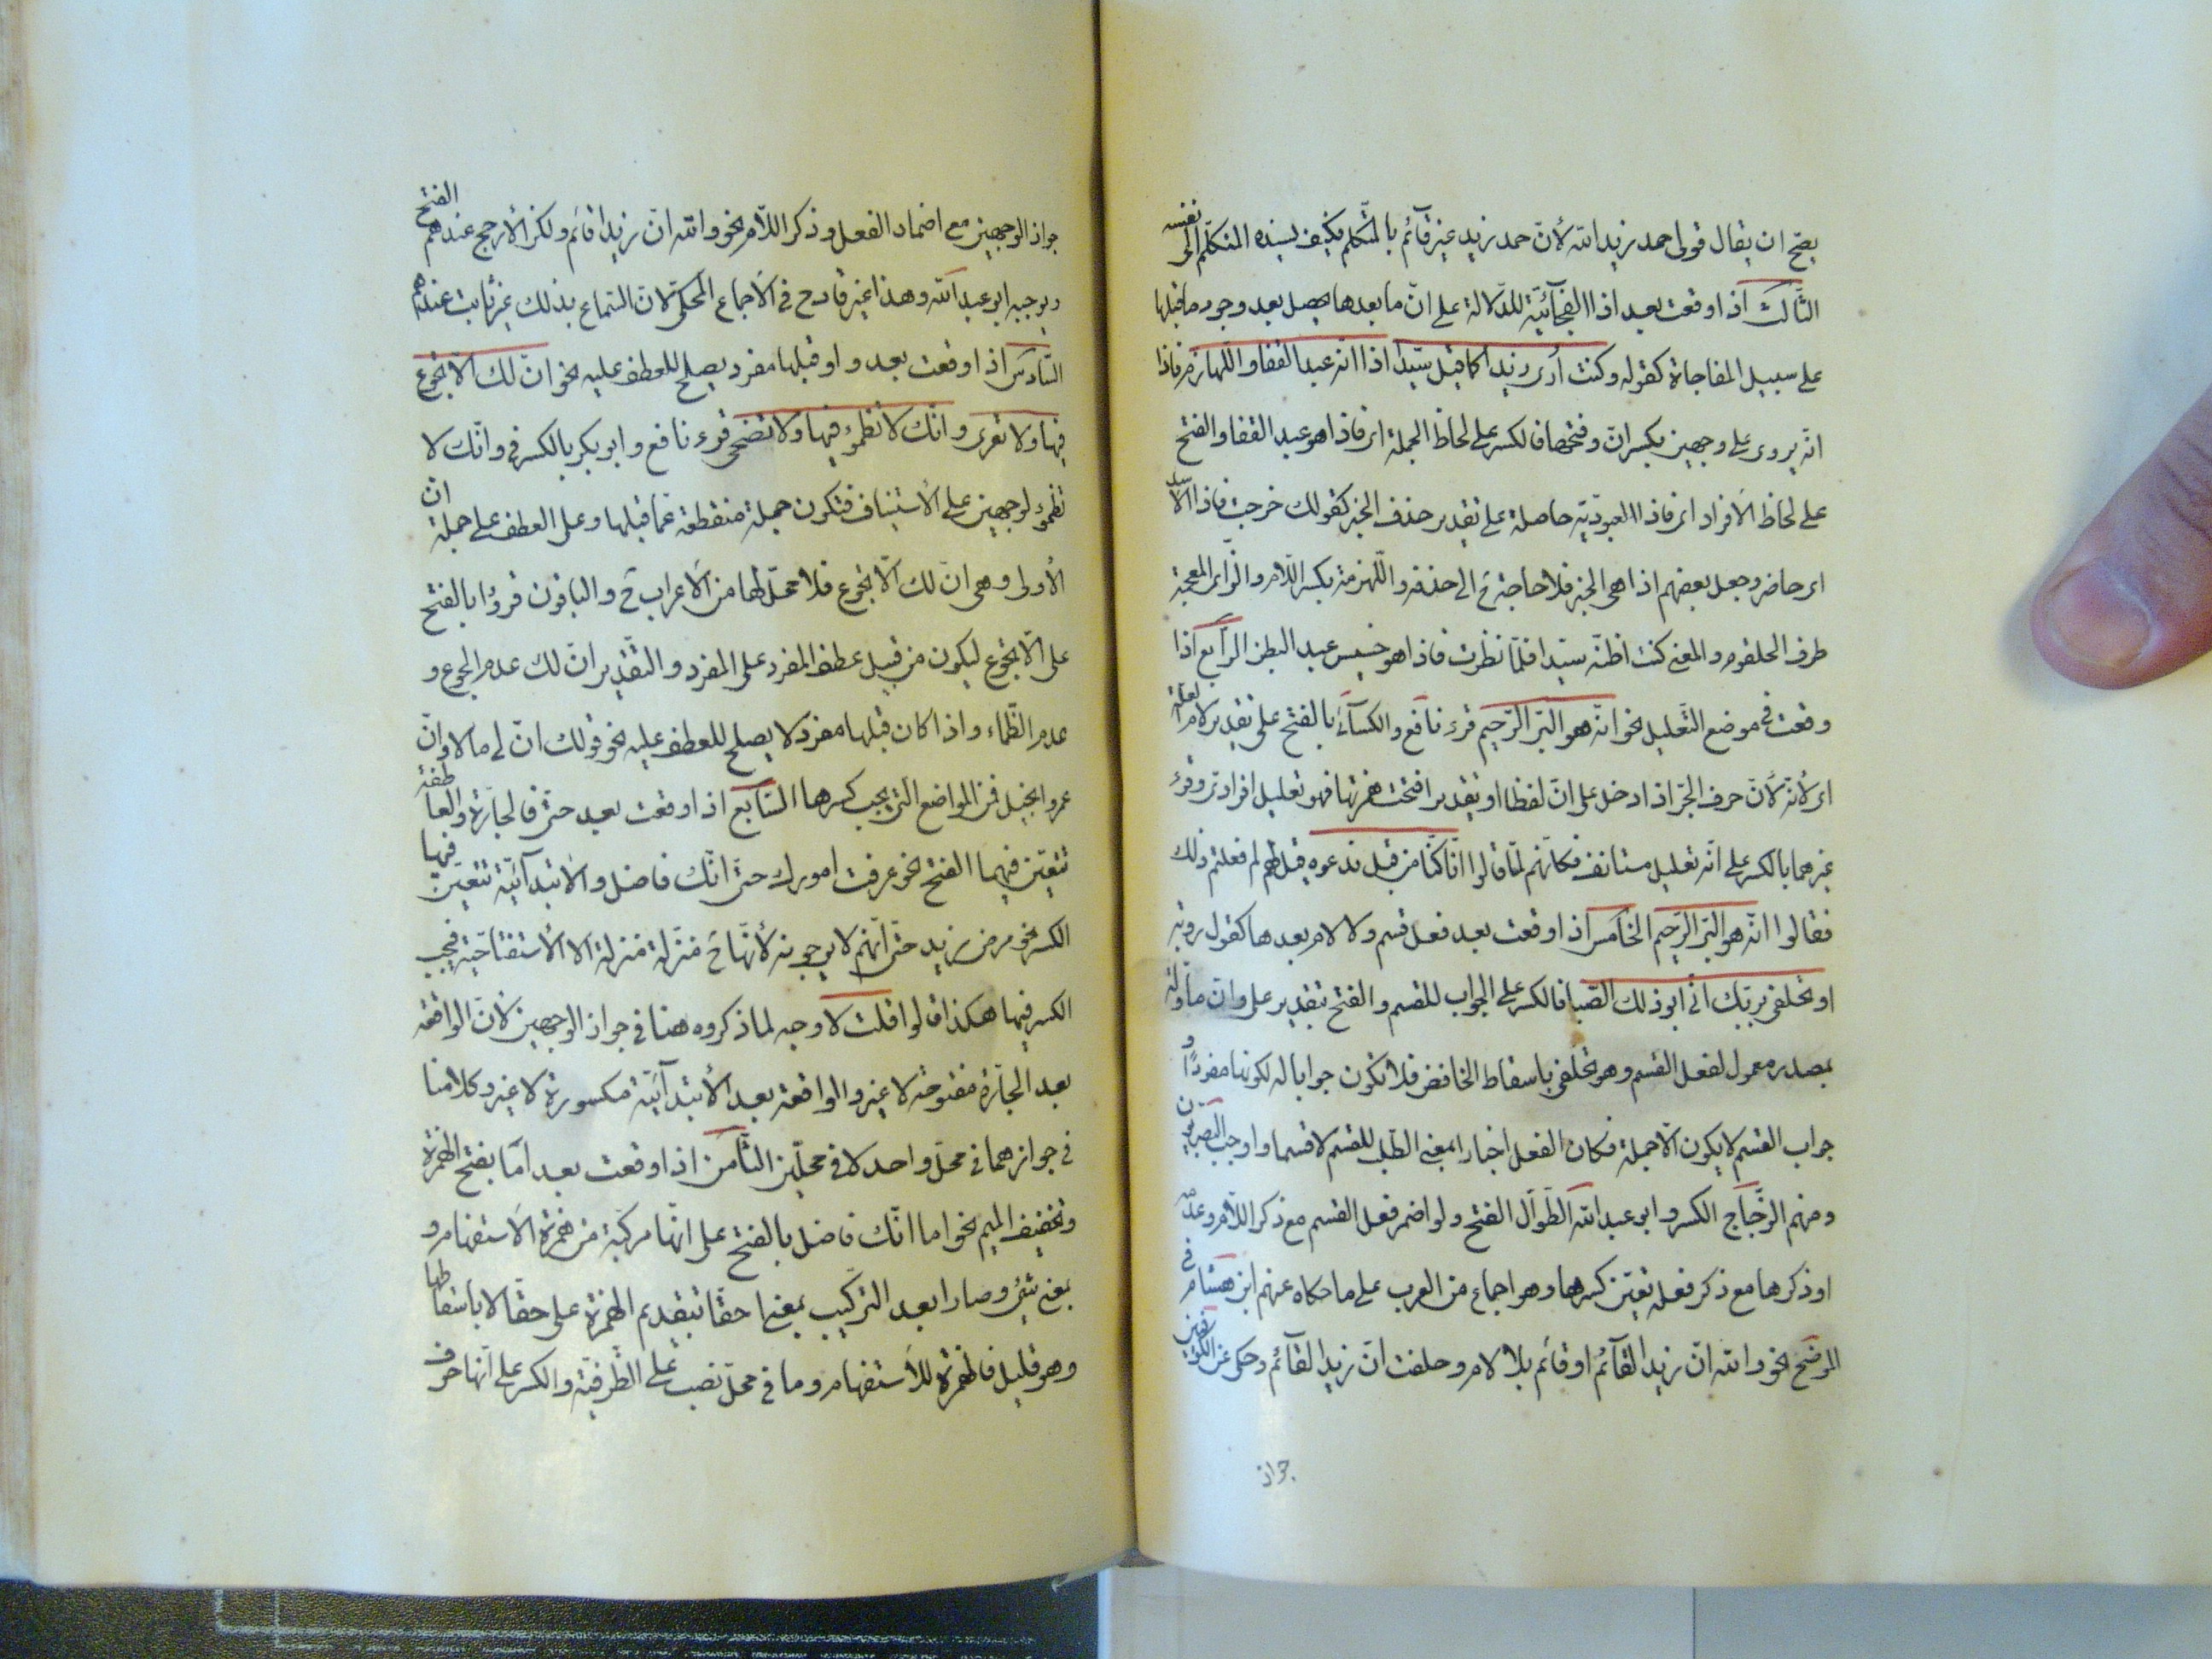 يصح ان يقال قولى احمد زيد الله لأنّ حمد زيد غير قآئم بالمتكلم فكيف يسنده المتكلم الى نفسه
الثّالث اذا وقعت بعد اذا الفجآئيّة للدّلالة على انّ ما بعدها يحصل بعد وجود ما قبلها
على سبيل المفاجاة كقوله وكنت أرى زيدا كما قيل سيّدا اذا انّه عبد القفا واللّهازم فاذا
انّه يروى على وجهين بكسر انّ وفتحها فالكسر على لحاظ الجملة اى فاذا هو عبد القفا والفتح
على لحاظ الافراد اى فاذا العبوديّة حاصلة على تقدير حذف الخبر كقولك خرجت فاذا الاسد
اى حاضر وجعل بعضهم اذا هى الخبر فلا حاجة ح الى حذفه واللّهزمة بكسر اللّام والزّاى المعجمة
طرف الحلقوم والمعنى كنت اظنّه سيّدا فلمّا نظرت فاذا هو خسيس عبد البطن الرّابع اذا
وقعت فى موضع التّعليل نحو انّه هو البرّ الرّحيم قرء نافع والكسآئى بالفتح على تقدير لام العلة
اى لأنّه لأنّ حرف الجرّ اذا دخل على انّ لفظا او تقديرا فتحت همزتها فهو تعليل افرادى وقرء
غيرهما بالكسر على انّه تعليل مستانف فكانّهم لمّا قالوا انّا كنّا من قبل ندعوه قيل لهم لم فعلتم ذلك
فقالوا انّه هو البرّ الرّحيم الخامس اذا وقعت بعد فعل قسم ولا لام بعدها كقول روبة
او تحلفى بربّك انّى ابو ذلك الصّبى فالكسر على الجواب للقسم والفتح بتقدير على وانّ مأوّلة
بمصدر معمول لفعل القسم وهو تحلفى باسقاط الخافض فلا تكون جوابا له لكونها مفردًا و
جواب القسم لا يكون الّا جملة فكان الفعل اخبارا بمعنى الطّلب للقسم لا قسما واوجب البصريون
ومنهم الزّجّاج الكسر وابو عبد الله الطّوّال الفتح ولو اضمر فعل القسم مع ذكر اللّام وعدمه
او ذكرها مع ذكر فعله تعيّن كسرها وهو اجماع من العرب على ما حكاه عنهم ابن هشام فى
الموضح نحو والله انّ زيدا لقآئم او قائم بلا لام وحلفت انّ زيدا لقآئم وحكى عن الكوفيين
جواز
جواز الوجهين مع اضمار الفعل وذكر اللّام نحو والله انّ زيدا قائم ولكن الأرجح عندهم الفتح
ويوجبه ابو عبد الله وهذا غير قادح فى الاجماع المحكىّ لانّ السّماع بذلك غير ثابت عندهم
السّادس اذا وقعت بعد واو قبلها مفرد يصلح للعطف عليه نحو انّ لك الّا تجوع
فيها ولا تعرى وانّك لا تظمؤ فيها ولا تضحى قرء نافع وابو بكر بالكسر فى وانّك لا
تظمؤ لوجهين على الأستيناف فتكون جملة منقطعة عمّا قبلها وعلى العطف على جملة انّ
الأولى وهى انّ لك الّا تجوع فلا محلّ لها من الاعراب ح والباقون قرؤا بالفتح
على الّا تجوع ليكون من قبيل عطف المفرد على المفرد والتقدير انّ لك عدم الجوع و
عدم الظّماء واذا كان قبلها مفرد لا يصلح للعطف عليه نحو قولك انّ لى مالا وانّ
عمروا بخيل فمن المواضع التى يجب كسرها السّابع اذا وقعت بعد حتّى فالجارّة والعاطفة
تتعيّن فيهما الفتح نحو عرفت امورك حتى انّك فاضل والابتدآئيّة تتعيّن فيها
الكسر نحو مرض زيد حتى انّهم لا يرجونه لأنّها ح منزّلة منزلة الا الأستفتاحيّة فيجب
الكسر فيها هكذا قالوا قلت لا وجه لما ذكروه هنا فى جواز الوجهين لأنّ الواقعة
بعد الجارّة مفتوحة لا غير والواقعة بعد الأبتدآئيّة مكسورة لا غير وكلامنا
فى جوازهما فى محلّ واحد لا فى محلّين الثّامن اذا وقعت بعد اما بفتح الهمزة
وتخفيف الميم نحو اما انّك فاضل بالفتح على انّها مركبّة من همزة الاستفهام و
بمعنى شئ وصارا بعد التركيب بمعنى احقّا بتقديم الهمزة على حقّا لا باسقاطها
وهو قليل فالهمزة للأستفهام وما فى محلّ نصب على الظّرفيّة والكسر على انّها حرف